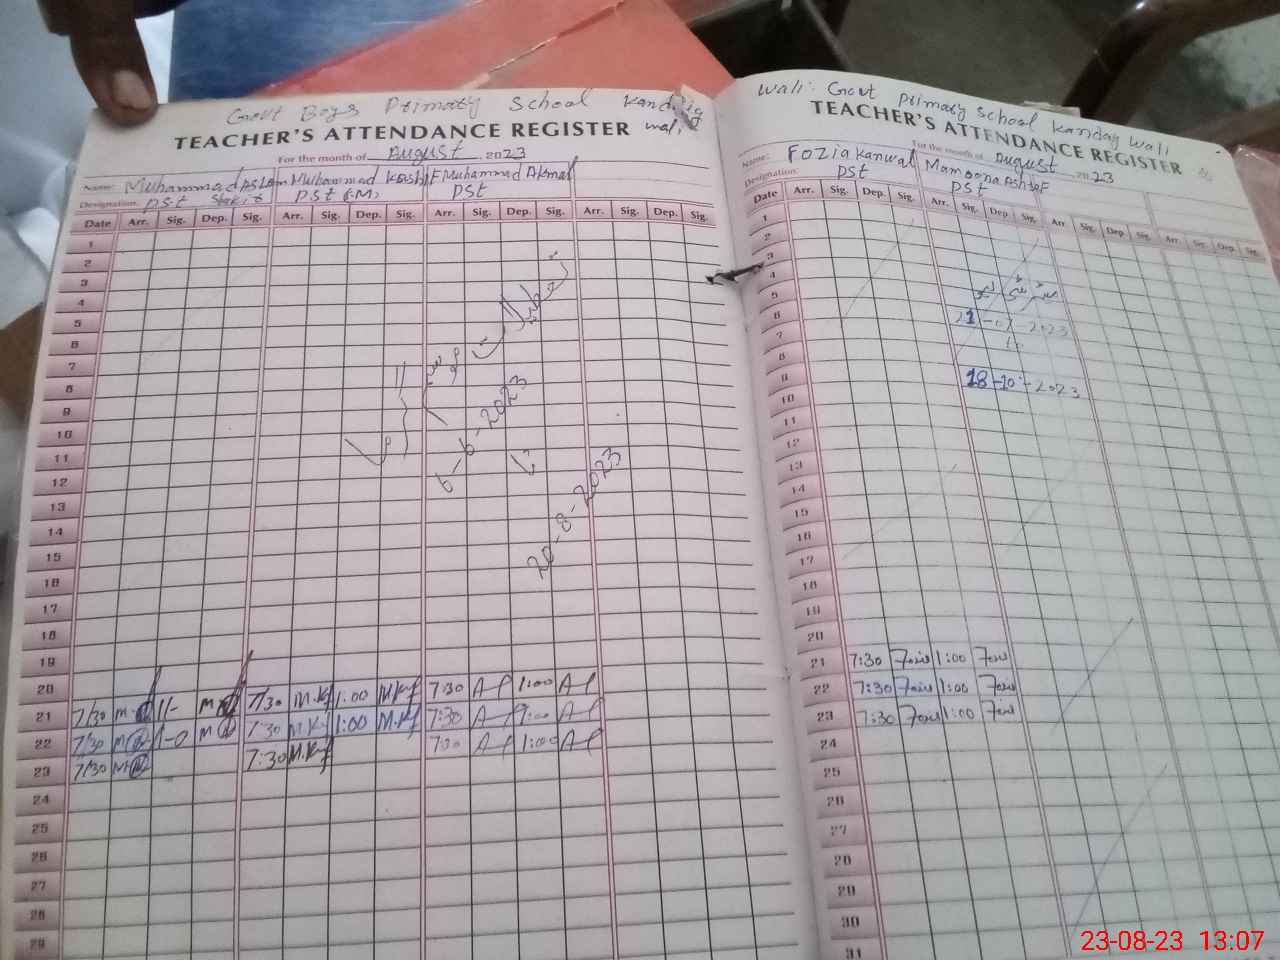 Govt Boys Primary School Kanday
Wali
TEACHER'S ATTENDANCE REGISTER
For the month of August 2023
Name: Muhammad Aslam Muhammad Kashif Muhammad Akmal
Designation. PSt PSt PSt
Date Arr. Sig. Dep. Sig. Arr. Sig. Dep. Sig. Arr. Sig. Dep. Sig. Arr. Sig. Dep. Sig.
1
2
3
4
5
6
7
8
9
10
11
12
13
14
15
16
17
18
19
20
21
22
23
24
25
26
27
28
29
6-6-2023
20-8-2023
7/30 7/30 M.Kf 1:00 M.Kf 7:30 Af 1:00 Af
7/30 1-0 7:30 M.Kf 1:00 M.Kf 7:30 Af 1:00 Af
7/30 7:30 M.Kf 7:30 Af 1:00 Af
Wali: Govt primary school Kanday Wali
TEACHER'S ATTENDANCE REGISTER
For the month of August 2023
Name: Fozia Kanwal Mamoona Ashraf
Designation. PSt PSt
Date Arr. Sig. Dep. Sig. Arr. Sig. Dep. Sig. Arr Sig. Dep. Sig. Arr. Sig. Dep. Sig.
1
2
3
4
5
6
7
8
9
10
11
12
13
14
15
16
17
18
19
20
21 7:30 Fozia 1:00 Fozia
22 7:30 Fozia 1:00 Fozia
23 7:30 Fozia 1:00 Fozia
24
25
26
27
28
29
30
31
21-07-2023
18-10-2023
23-08-23 13:07